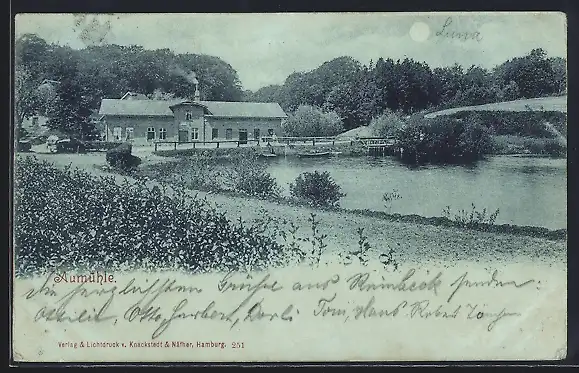 Luna
Aumühle.
Die herzlichsten Grüße aus Reinbeck senden:
Otto, Herbert, Tom, Hans Robert
Verlag & Lichtdruck v. Knackstedt & Näther, Hamburg. 251